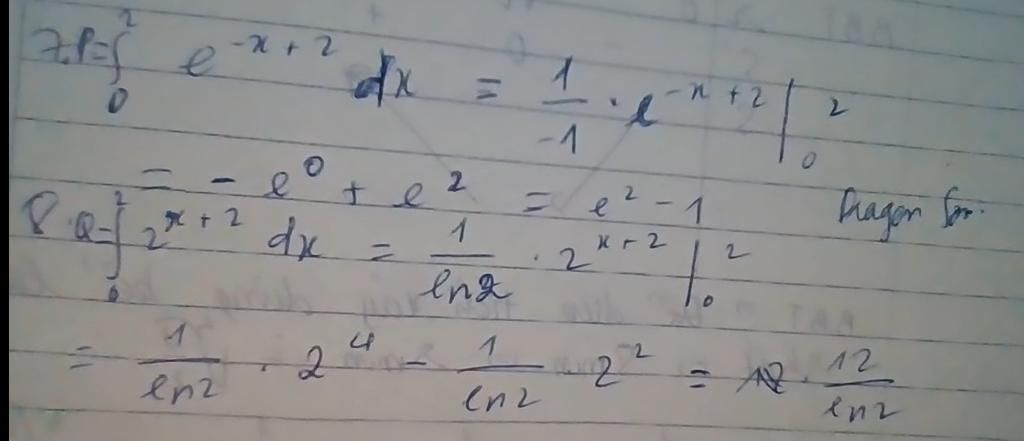 7. P = ∫₀² e^{-x+2} dx = 1/-1 · e^{-x+2} |₀²
= - e⁰ + e² = e² - 1
8. Q = ∫₀² 2^{x+2} dx = 1/ln2 · 2^{x+2} |₀²
= 1/ln2 · 2⁴ - 1/ln2 2² = 12/ln2